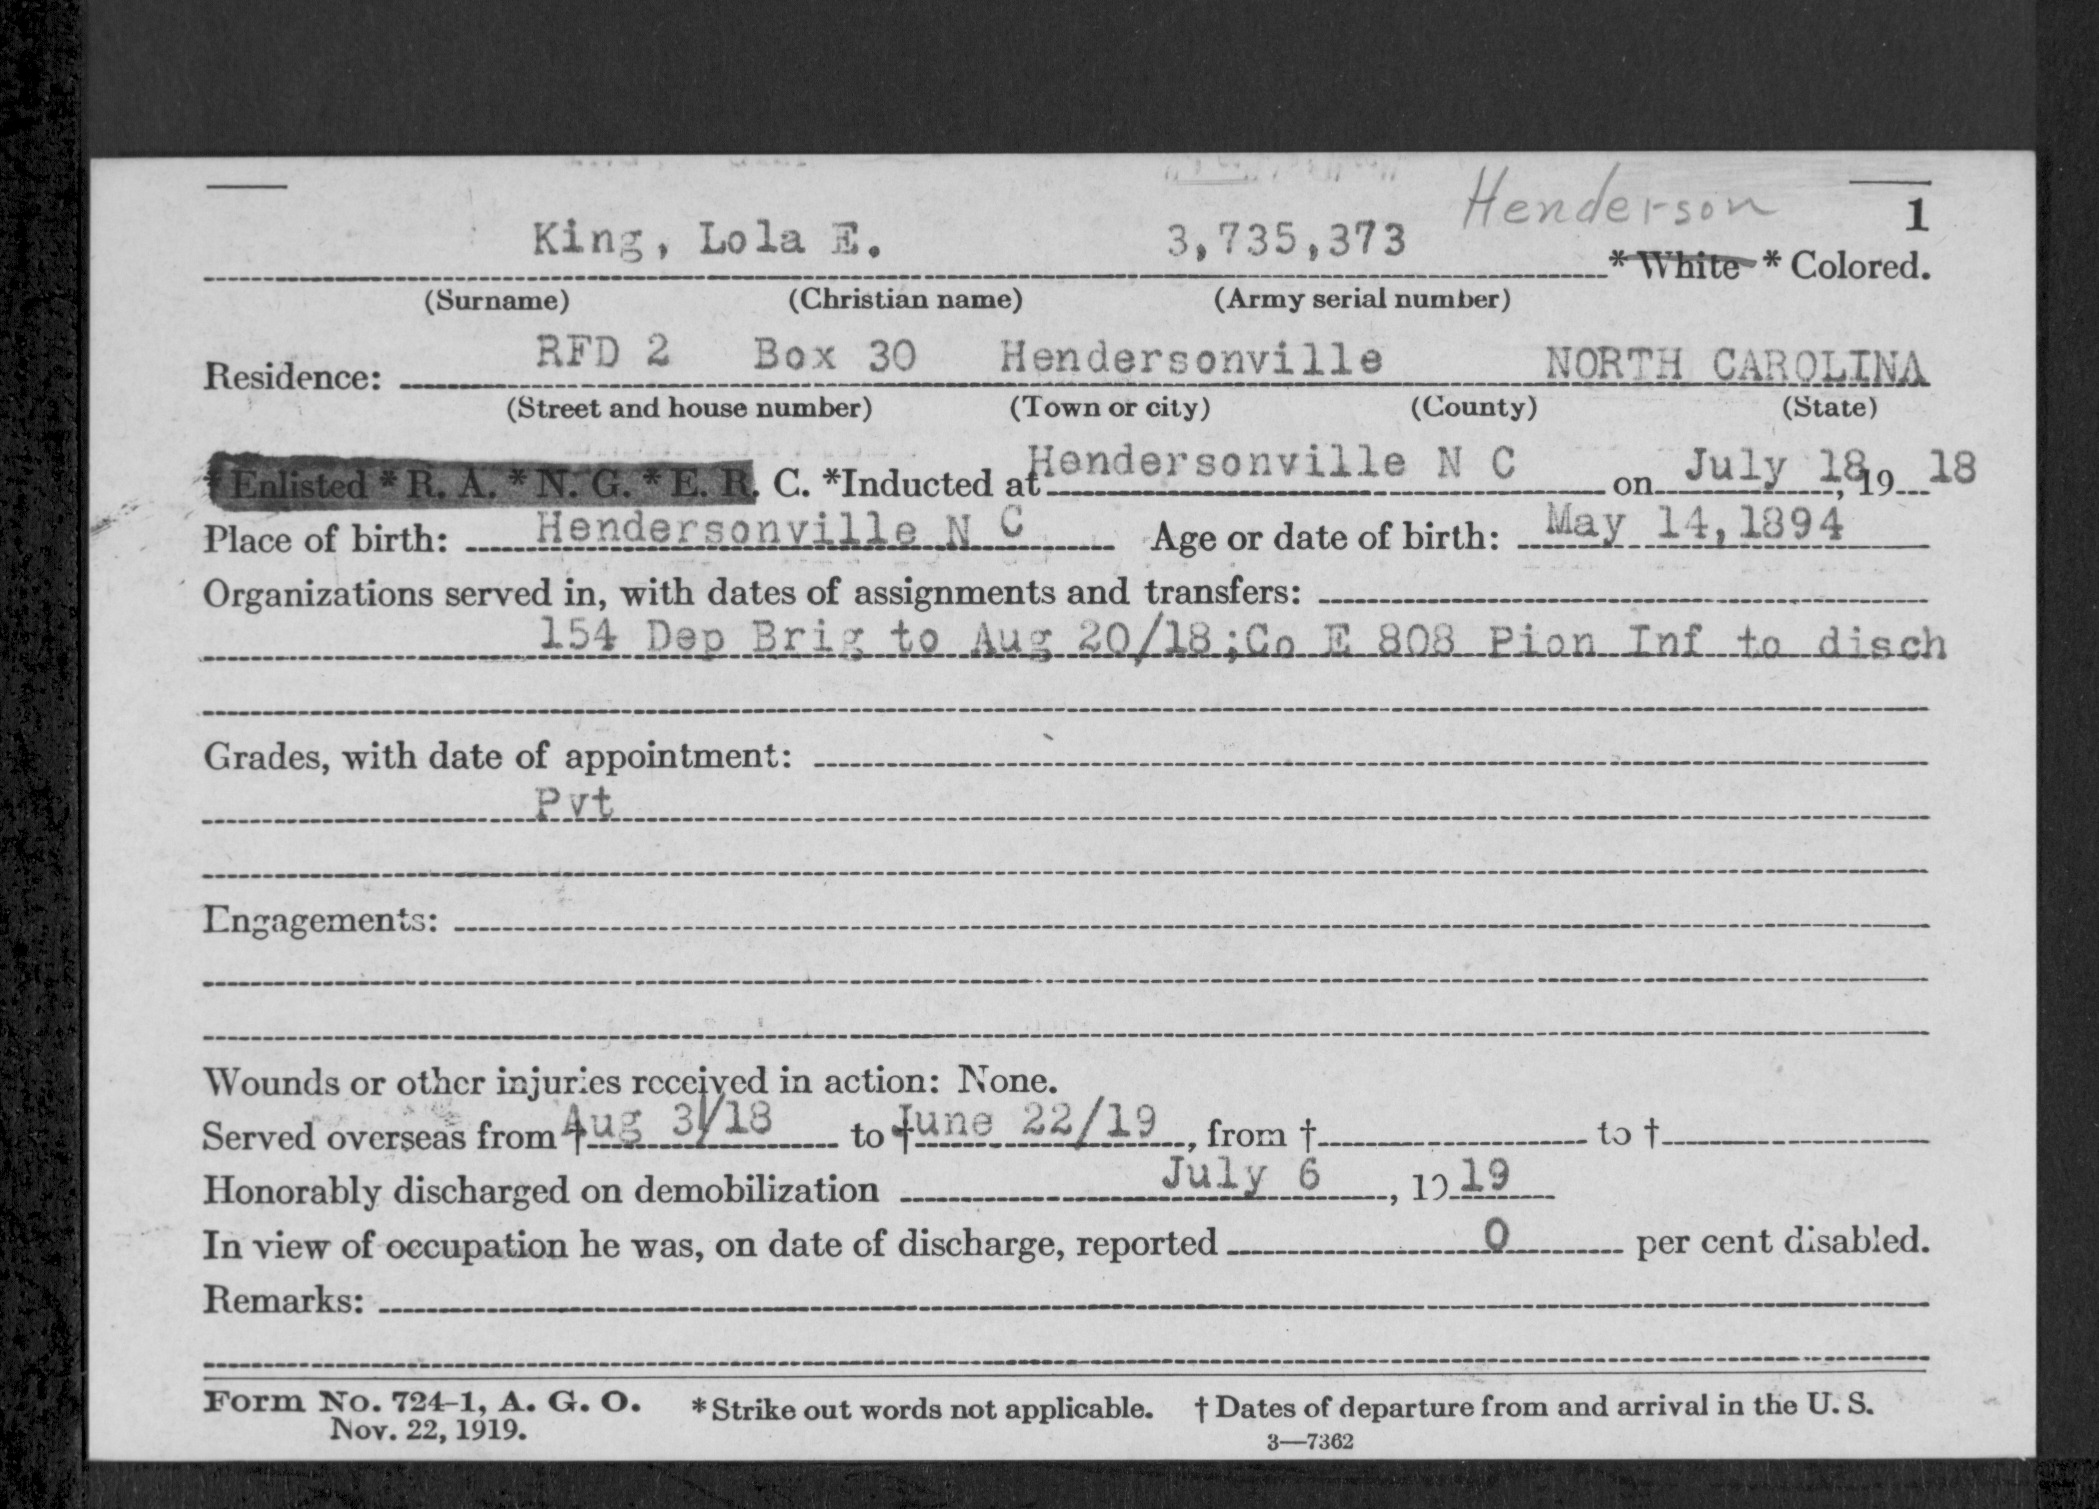 Henderson
1
King, Lola E. 3,735,373 * White * Colored.
(Surname) (Christian name) (Army serial number)
Residence: RFD 2 Box 30 Hendersonville NORTH CAROLINA
(Street and house number) (Town or city) (County) (State)
* Enlisted * R. A. * N. G. * E. R. C. *Inducted at Hendersonville N C on July 18, 19 18
Place of birth: Hendersonville N C Age or date of birth: May 14, 1894
Organizations served in, with dates of assignments and transfers:
154 Dep Brig to Aug 20/18;Co E 808 Pion Inf to disch
Grades, with date of appointment:
Pvt
Engagements:
Wounds or other injuries received in action: None.
Served overseas from † Aug 31/18 to † June 22/19, from † to †
Honorably discharged on demobilization July 6, 19 19
In view of occupation he was, on date of discharge, reported 0 per cent disabled.
Remarks:
Form No. 724-1, A. G. O. * Strike out words not applicable. † Dates of departure from and arrival in the U. S.
Nov. 22, 1919. 3—7362